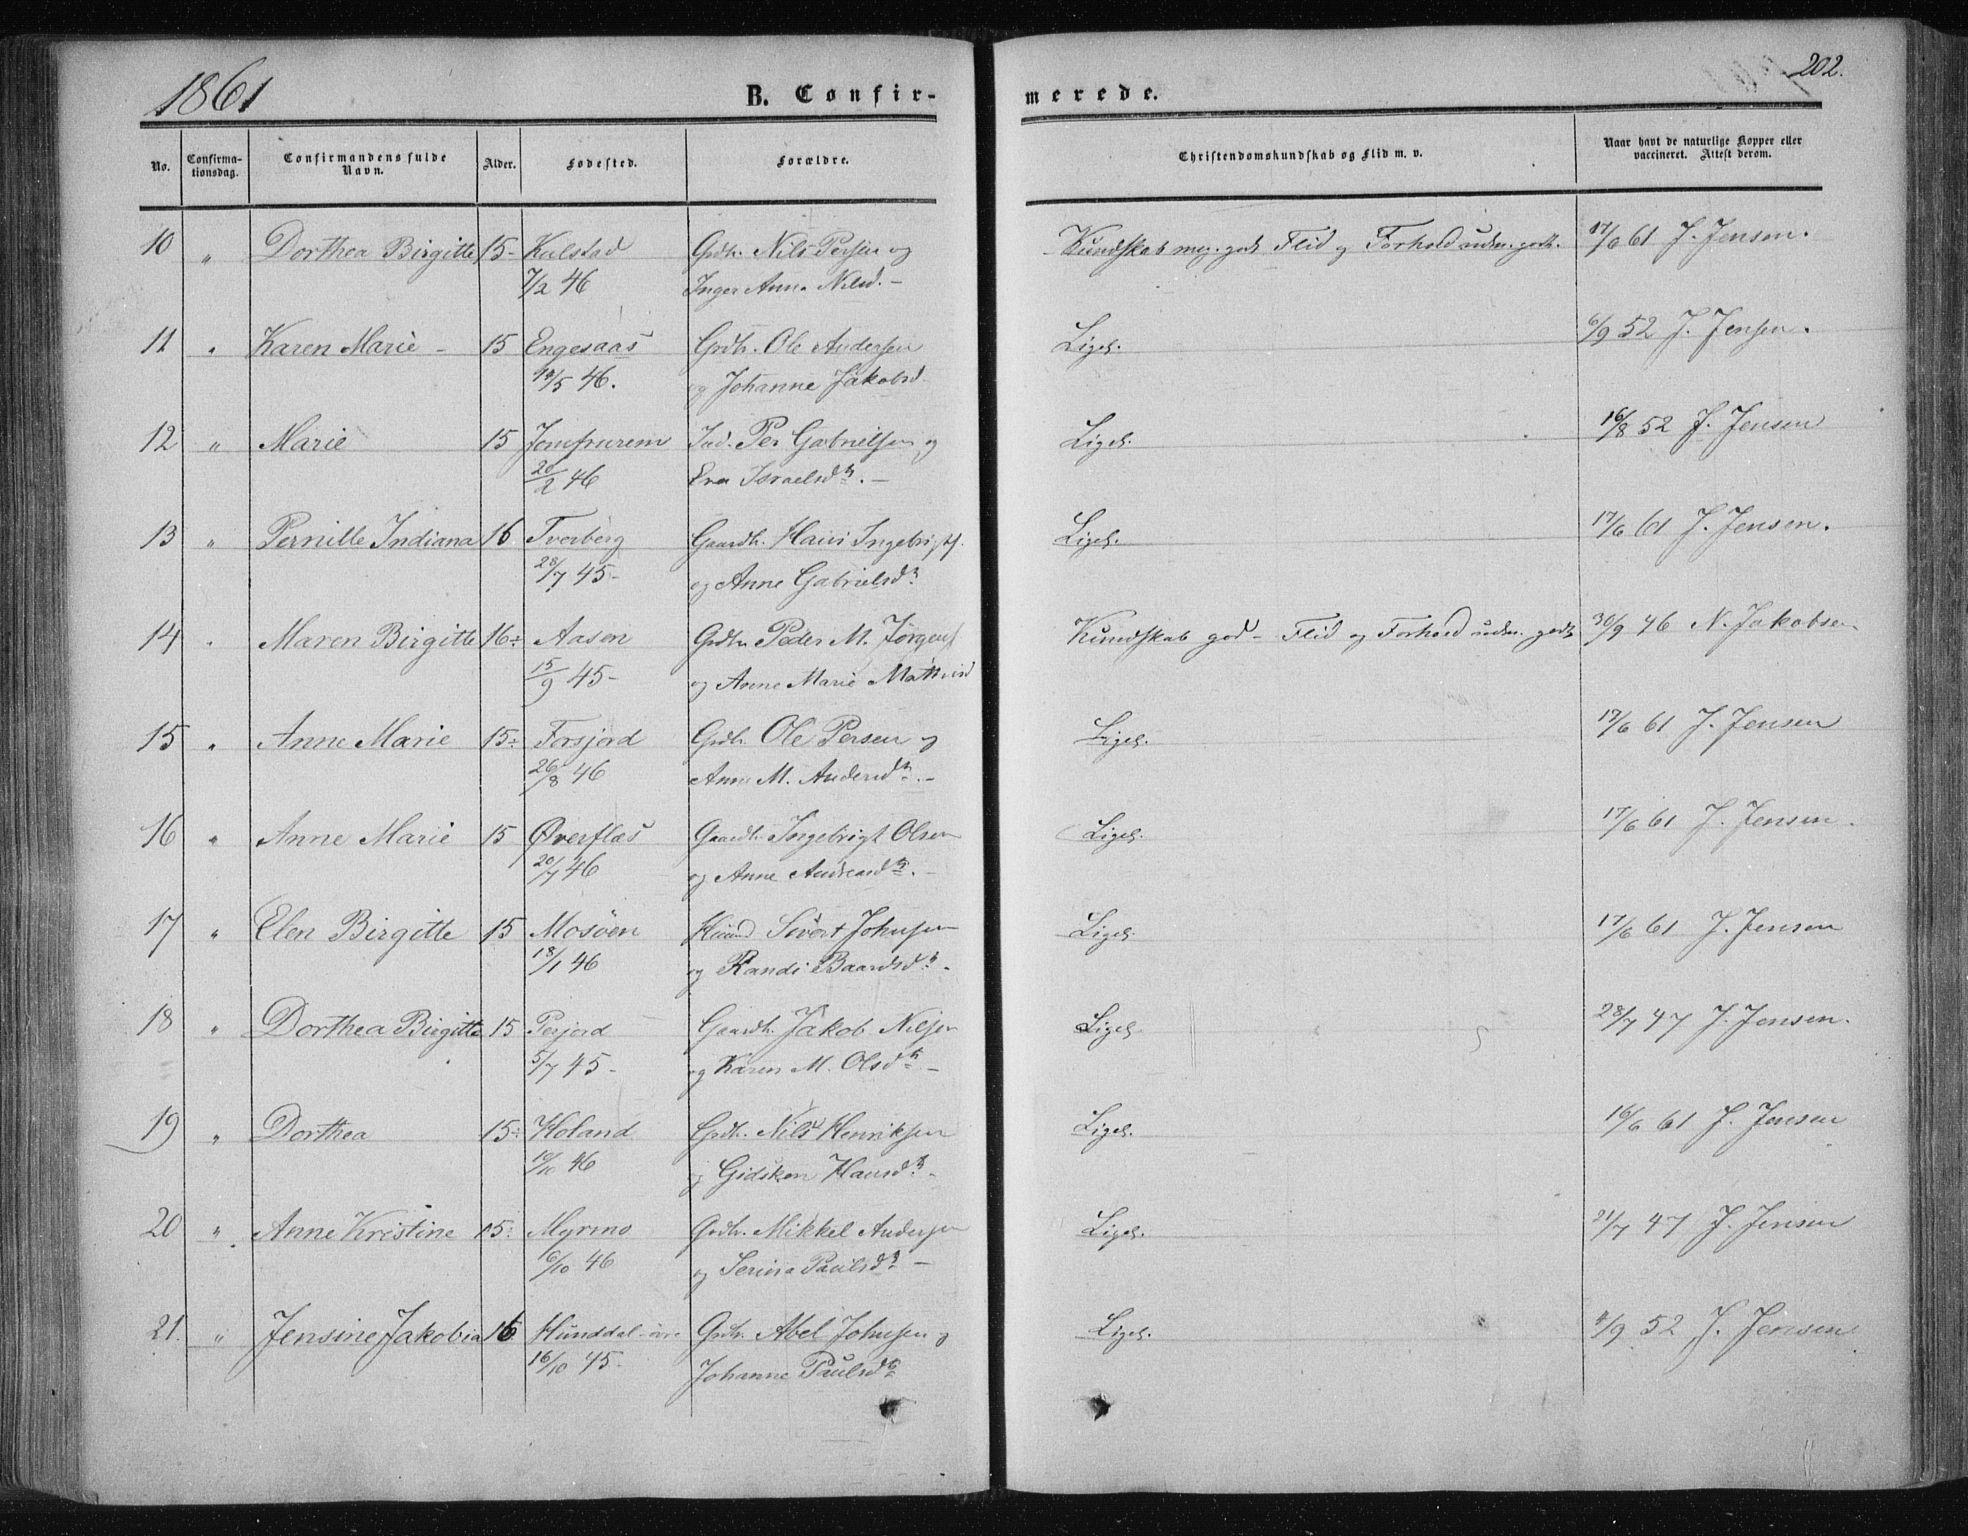 1861
B. Confir-
merede.
202.
No.
Confirma-
tionsdag.
Confirmandens fulde
Navn.
Alder.
Fødested.
Forældre.
Christendomskundskab og Flid m. v.
Naar havt de naturlige Kopper eller
vaccineret. Attest derom.
10 " Dorthea Birgitte 15- Kulstad Grdbr. Nils Persen og Kundskab meg. godt Flid og Forhold udm. godt. 17/6 61 J. Jensen.
7/2 46 Inger Anna Nilsd. -
11 " Karen Marie - 15 Engesaas Grdbr. Ole Andersen Ligel. 6/9 52 J. Jensen.
14/5 46. og Johanne Jakobsd.
12 " Marie 15 Jomfrurem Ind. Per Gabrielsen og Ligel. 16/8 52 J. Jensen
20/2 46 Eva Israelsdtr. -
13 " Pernille Indiana 16 Tverberg Gaardb. Hans Ingebrigts. Ligel. 17/6 61 J. Jensen.
28/7 45- og Anne Gabrielsdtr
14 " Maren Birgitte 16÷ Aasen Grdbr. Peder M. Jørgens Kundskab god - Flid og Forhold udm. godt 30/9 46 N. Jakobsen
15/9 45- og Anne Marie Mathisd
15 " Anne Marie 15÷ Forsjord Grdb. Ole Persen og Ligel. 17/6 61 J. Jensen
26/8 46 Anne M. Andersdtr. -
16 " Anne Marie 15 Øverflæs Gaardb. Ingebrigt Olsen Ligel. 17/6 61 J. Jensen.
20/7 46 og Anne Andreasdtr. -
17 " Elen Birgitte 15 Mosøen Huusmd Sivert Johnsen Ligel. 17/6 61 J. Jensen
18/1 46 og Randi Baardsdtr. -
18 " Dorthea Birgitte 15 Persjord Gaardb. Jakob Nilsen Ligel. 28/7 47 J. Jensen.
5/7 45- og Karen M. Olsdtr -
19 " Dorthea 15÷ Holand Grdb. Nils Henriksen Ligel. 16/6 61 J. Jensen
10/10 46 og Gidsken Hansdtr -
20 " Anne Kristine 15÷ Myrmo Grdb. Mikkel Andersen Ligel. 21/7 47 J. Jensen
6/10 46 og Serina Paulsdtr -
21. " Jensine Jakobia 16 Hunddal-øvre Grdb. Abel Johnsen og Ligel. 4/9 52 J. Jensen
16/10 45- Johanne Paulsdtr